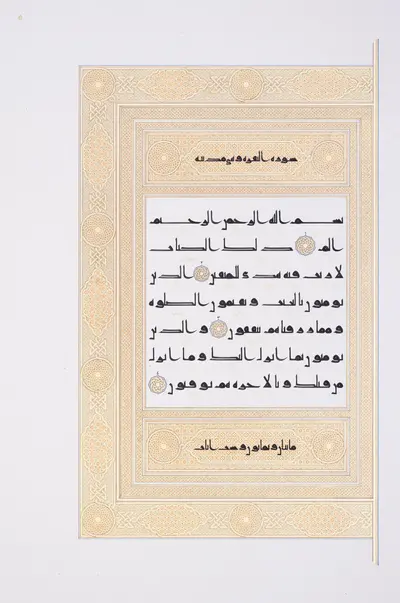 سورة البقرة وهي مدنية
بسم الله الرحمن الرحيم
الم ۝ ذلك الكتب
لا ريب فيه هدى للمتقين ۝ الذين
يومنون بالغيب ويقيمون الصلوة
ومما رزقنهم ينفقون ۝ والذين
يومنون بما انزل اليك وما انزل
من قبلك وبالاخرة هم يوقنون ۝
مائتان وثمانون وست ايات